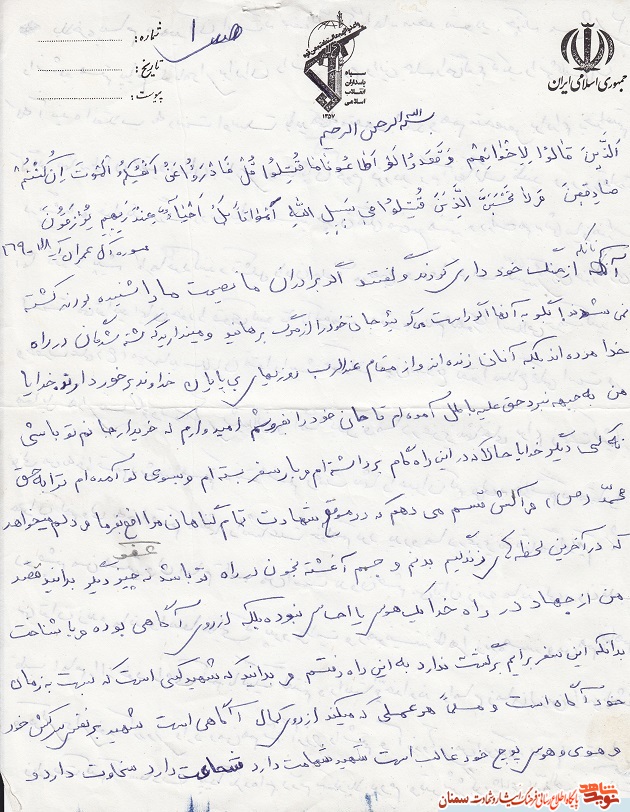 جمهوری اسلامی ایران
سپاه
پاسداران
انقلاب
اسلامی
۱۳۵۷
شماره:
تاریخ:
پیوست:
بسم الله الرحمن الرحیم
اَلَّذینَ قالوُا لِاِخْوانِهِم وَقَعَدُوا لَوْ اَطاعُونا ما قُتِلوُا قُلْ فَادْرَؤُا عَنْ اَنْفُسِکُمُ الْمَوْتَ اِنْ کُنْتُمْ
صادِقینَ وَلا تَحْسَبَنَّ الَّذینَ قُتِلُوا فی سَبیلِ اللهِ اَمْواتاً بَلْ اَحْیاءٌ عِنْدَ رَبِّهِم یُرْزَقُونَ
سوره آل عمران آیه ۱۶۹-۱۶۸
آنانکه از جنگ خود داری کردند و گفتند اگر برادران ما نصیحت ما را شنیده بودند کشته
نمی شدند بگو به آنها اگر راست می گوئید جان خود را از مرگ برهانید و مپندارید که کشته شدگان در راه
خدا مرده اند بلکه آنان زنده اند و از مقام عند الرب روزیهای بی پایان خداوند برخوردارند خدایا
من به جبهه نبرد حق علیه باطل آمده ام تا جان خود را بفروشم امیدوارم که خریدار جانم تو باشی
نه کسی دیگر خدایا حالا که در این راه گام برداشته ام و بار سفر بسته ام و بسوی تو آمده ام ترا به حق
محمد (ص) و آلش قسم می دهم که در موقع شهادت تمام گناهان مرا عفو بفرما و دلم میخواهد
که در آخرین لحظه های زندگیم بدنم و جسم آغشته بخون در راه تو باشد نه چیز دیگر بدانید قصد
من از جهاد در راه خدا یک هوس یا احساس نبوده بلکه از روی آگاهی بوده و با شناخت
بدانکه این سفر برایم برگشت ندارد به این راه رفتم و بدانید که شهید کسی است که نسبت به زمان
خود آگاه است و مسلماً هر عملی که میکند از روی کمال آگاهی است شهید بر نفس سرکش خود
و هوی و هوس پوچ خود غالب است شهید شهامت دارد شجاعت دارد سخاوت دارد و
نوید شاهد
پایگاه اطلاع رسانی فرهنگ ایثار و شهادت سمنان